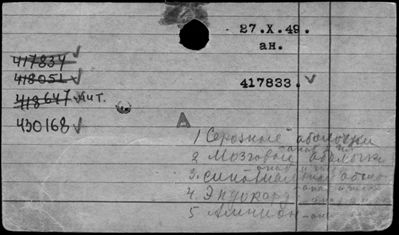 27.X.49.
ан.
417834
418051
418647 лит.
430168
417833.
А
1 Серозные оболочки
2 Мозговые оболочки
3. синовиальная
4. Эндокард
5 Амнион